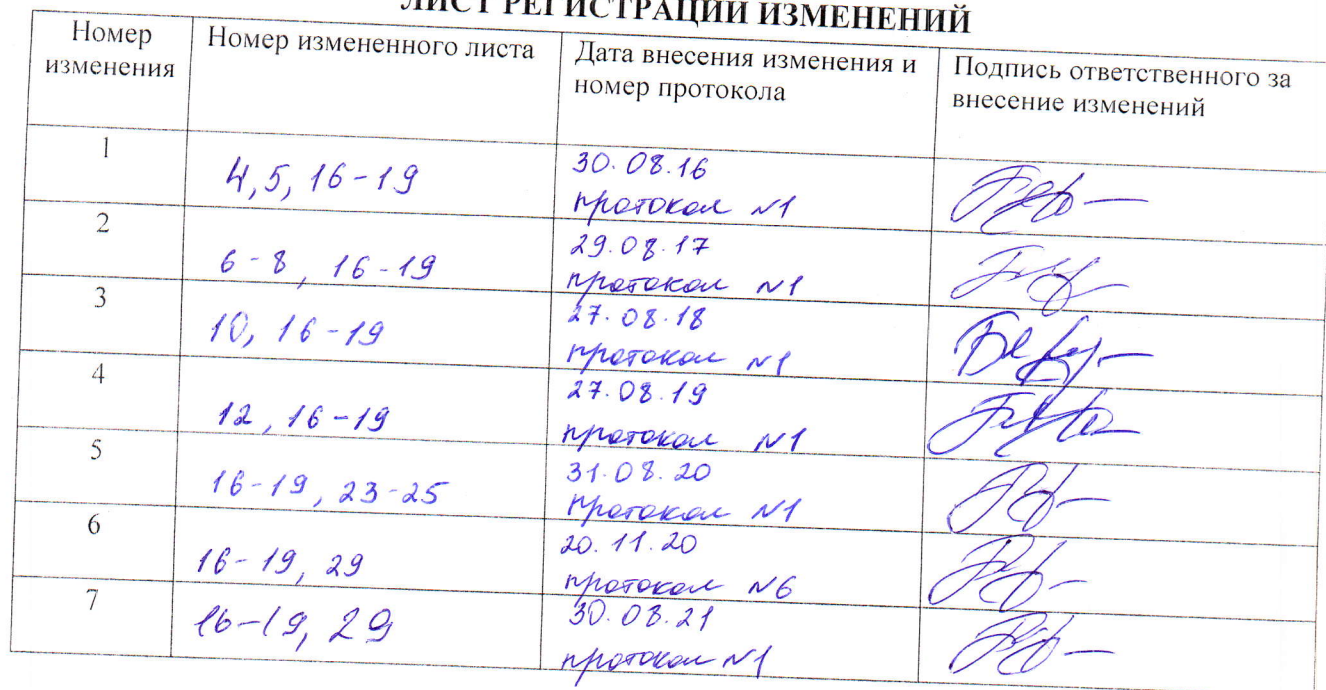 ЛИСТ РЕГИСТРАЦИИ ИЗМЕНЕНИЙ
Номер изменения
Номер измененного листа
Дата внесения изменения и номер протокола
Подпись ответственного за внесение изменений
1
4, 5, 16-19
30.08.16
протокол №1
2
6-8, 16-19
29.08.17
протокол №1
3
10, 16-19
27.08.18
протокол №1
4
12, 16-19
27.08.19
протокол №1
5
16-19, 23-25
31.08.20
протокол №1
6
16-19, 29
20.11.20
протокол №6
7
16-19, 29
30.08.21
протокол №1